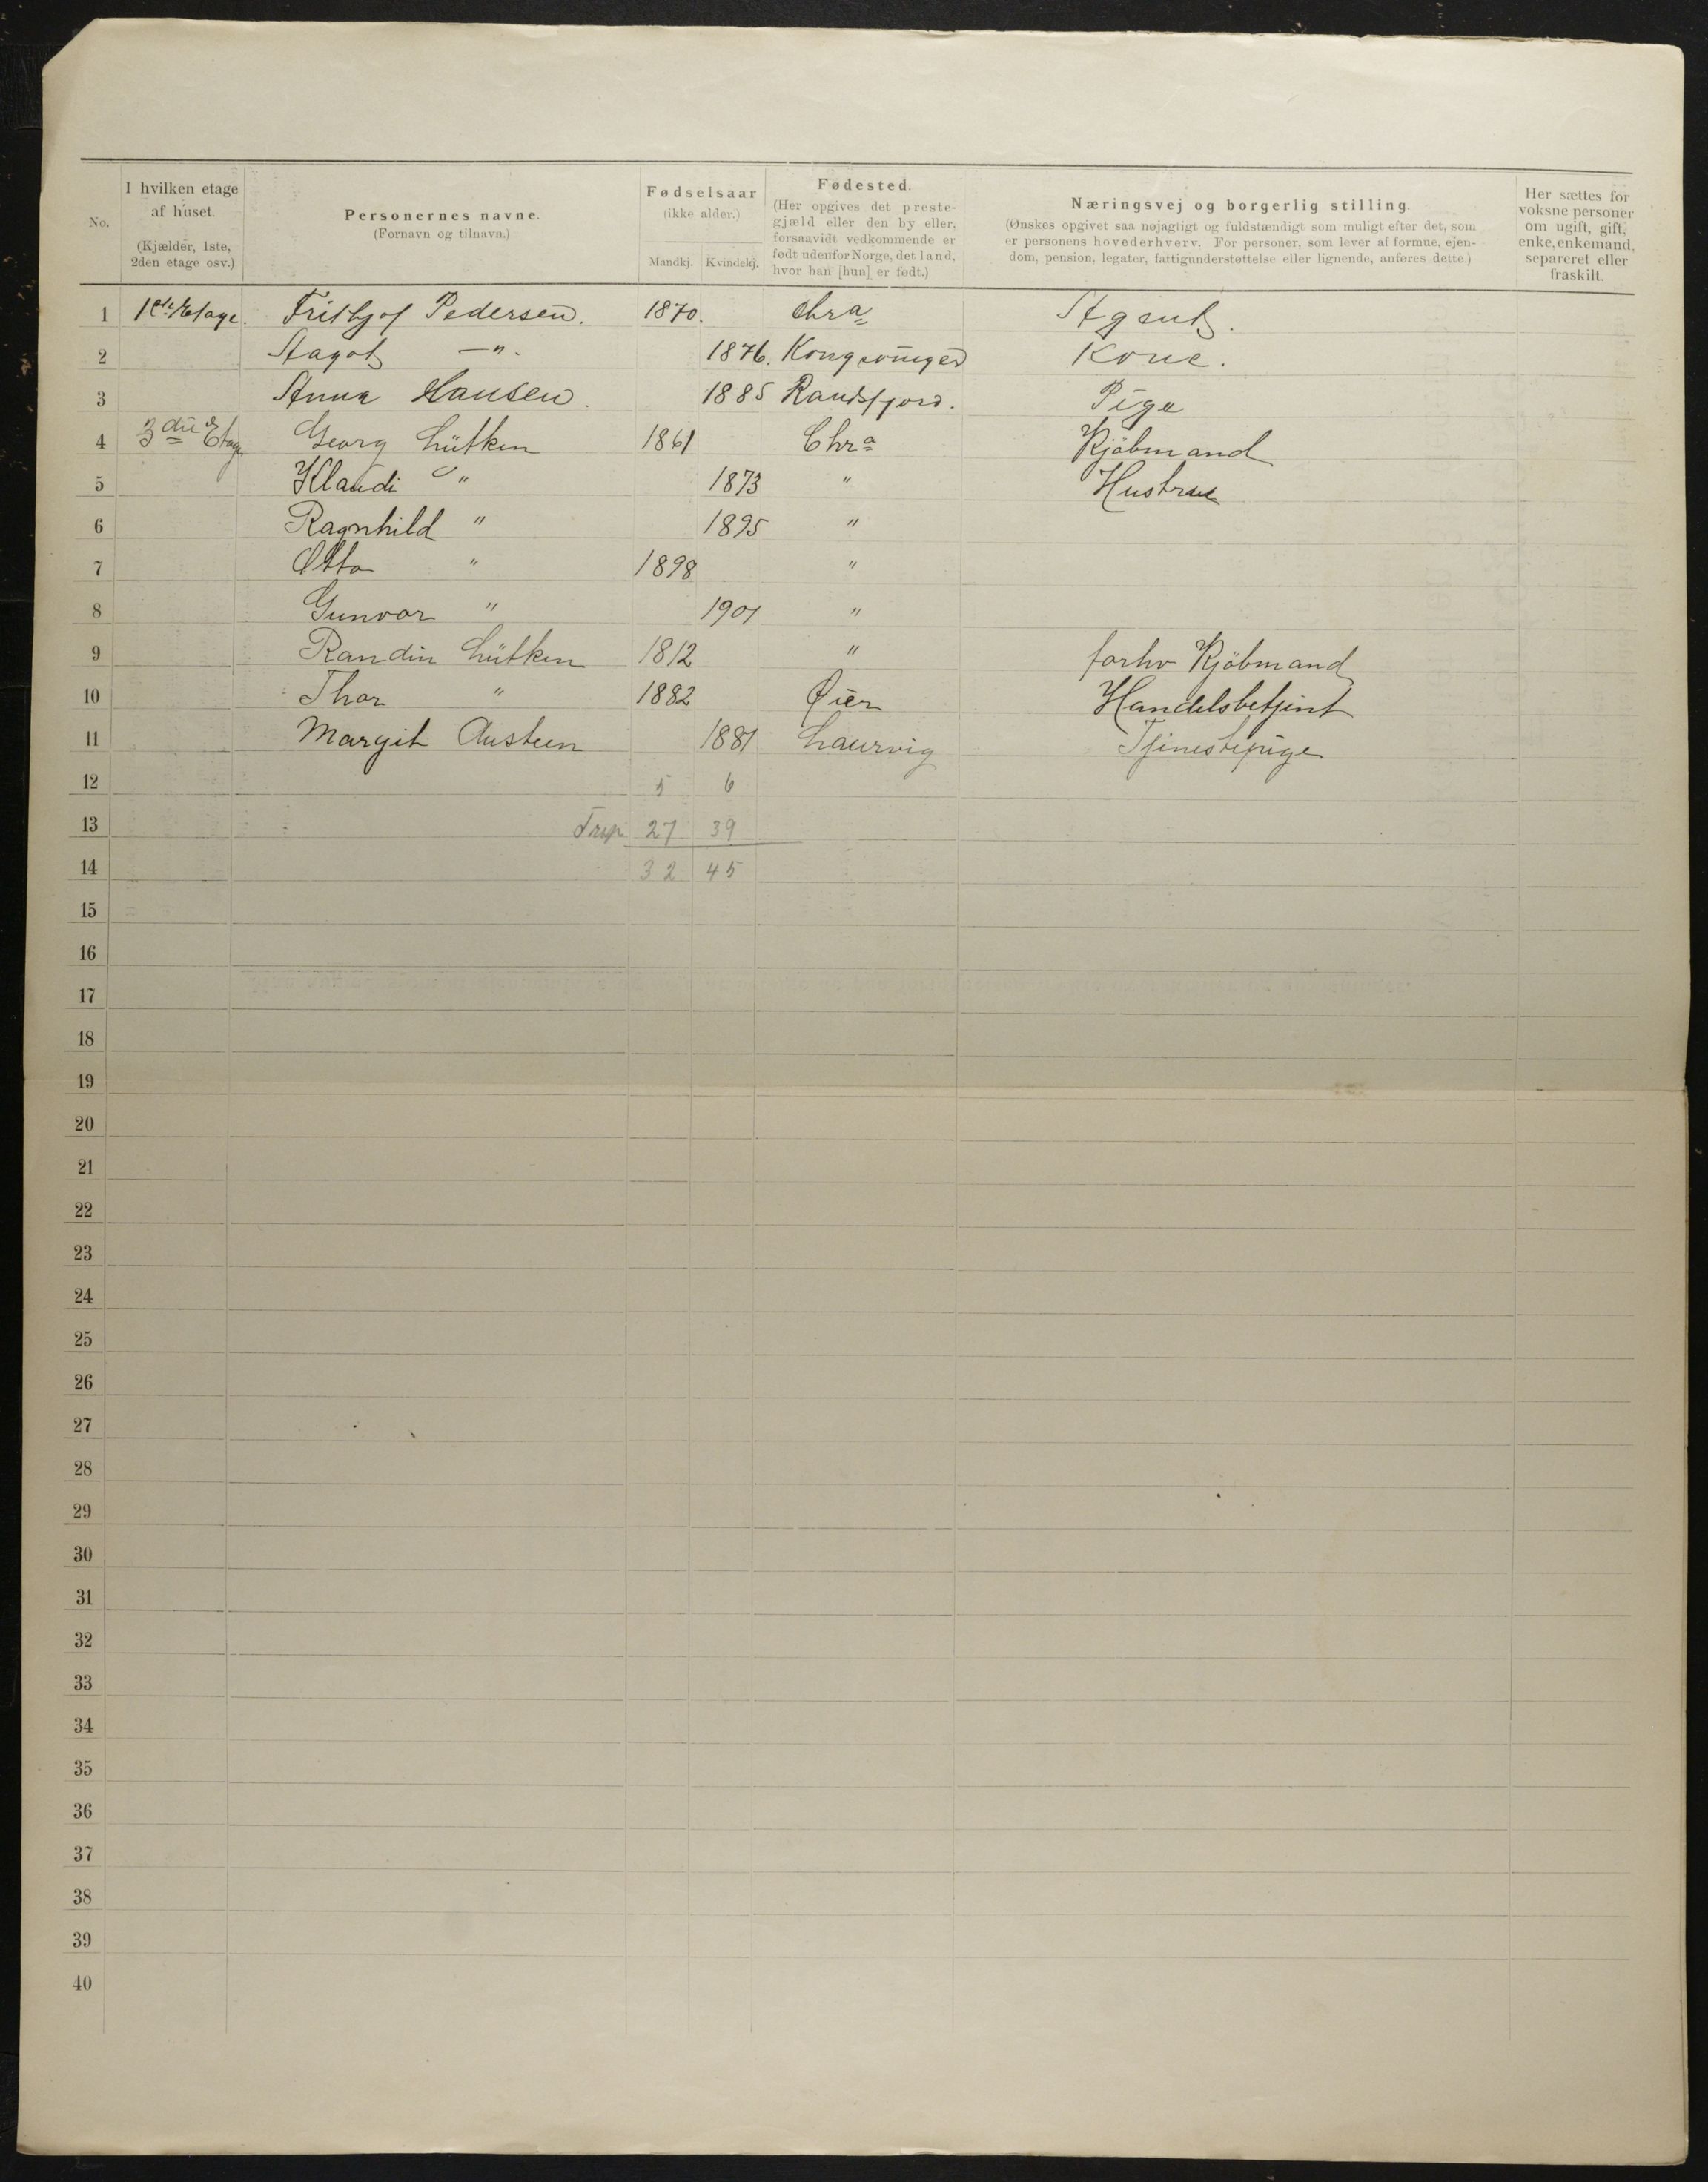 No.
I hvilken etage af huset.
(Kjælder, 1ste, 2den etage osv.)
Personernes navne.
(Fornavn og tilnavn.)
Fødselsaar
(ikke alder.)
Mandkj. Kvindekj.
Fødested.
(Her opgives det prestegjæld eller den by eller, forsaavidt vedkommende er født udenfor Norge, det land, hvor han [hun] er født.)
Næringsvej og borgerlig stilling.
(Ønskes opgivet saa nøjagtigt og fuldstændigt som muligt efter det, som er personens hovederhverv. For personer, som lever af formue, ejendom, pension, legater, fattigunderstøttelse eller lignende, anføres dette.)
Her sættes for voksne personer om ugift, gift, enke, enkemand, separeret eller fraskilt.
1 1ste Etage. Fritbjof Pedersen. 1870. Chra Agent.
2 Aagot —"— 1876. Kongsvinger Kone.
3 Anna Hansen. 1885 Randsfjord. Pige
4 3die Etage Georg Lütken 1861 Chra Kjöbmand
5 Klaudi " 1873 " Hustrue
6 Ragnhild " 1895 "
7 Otto " 1898 "
8 Gunvor " 1901 "
9 Randin Lütken 1812 " forhv Kjöbmand
10 Thor " 1882 Öier Handelsbetjent
11 Margit Austeen 1881 Laurvig Tjenestepige
12 5 6
13 27 39
14 32 45
15
16
17
18
19
20
21
22
23
24
25
26
27
28
29
30
31
32
33
34
35
36
37
38
39
40